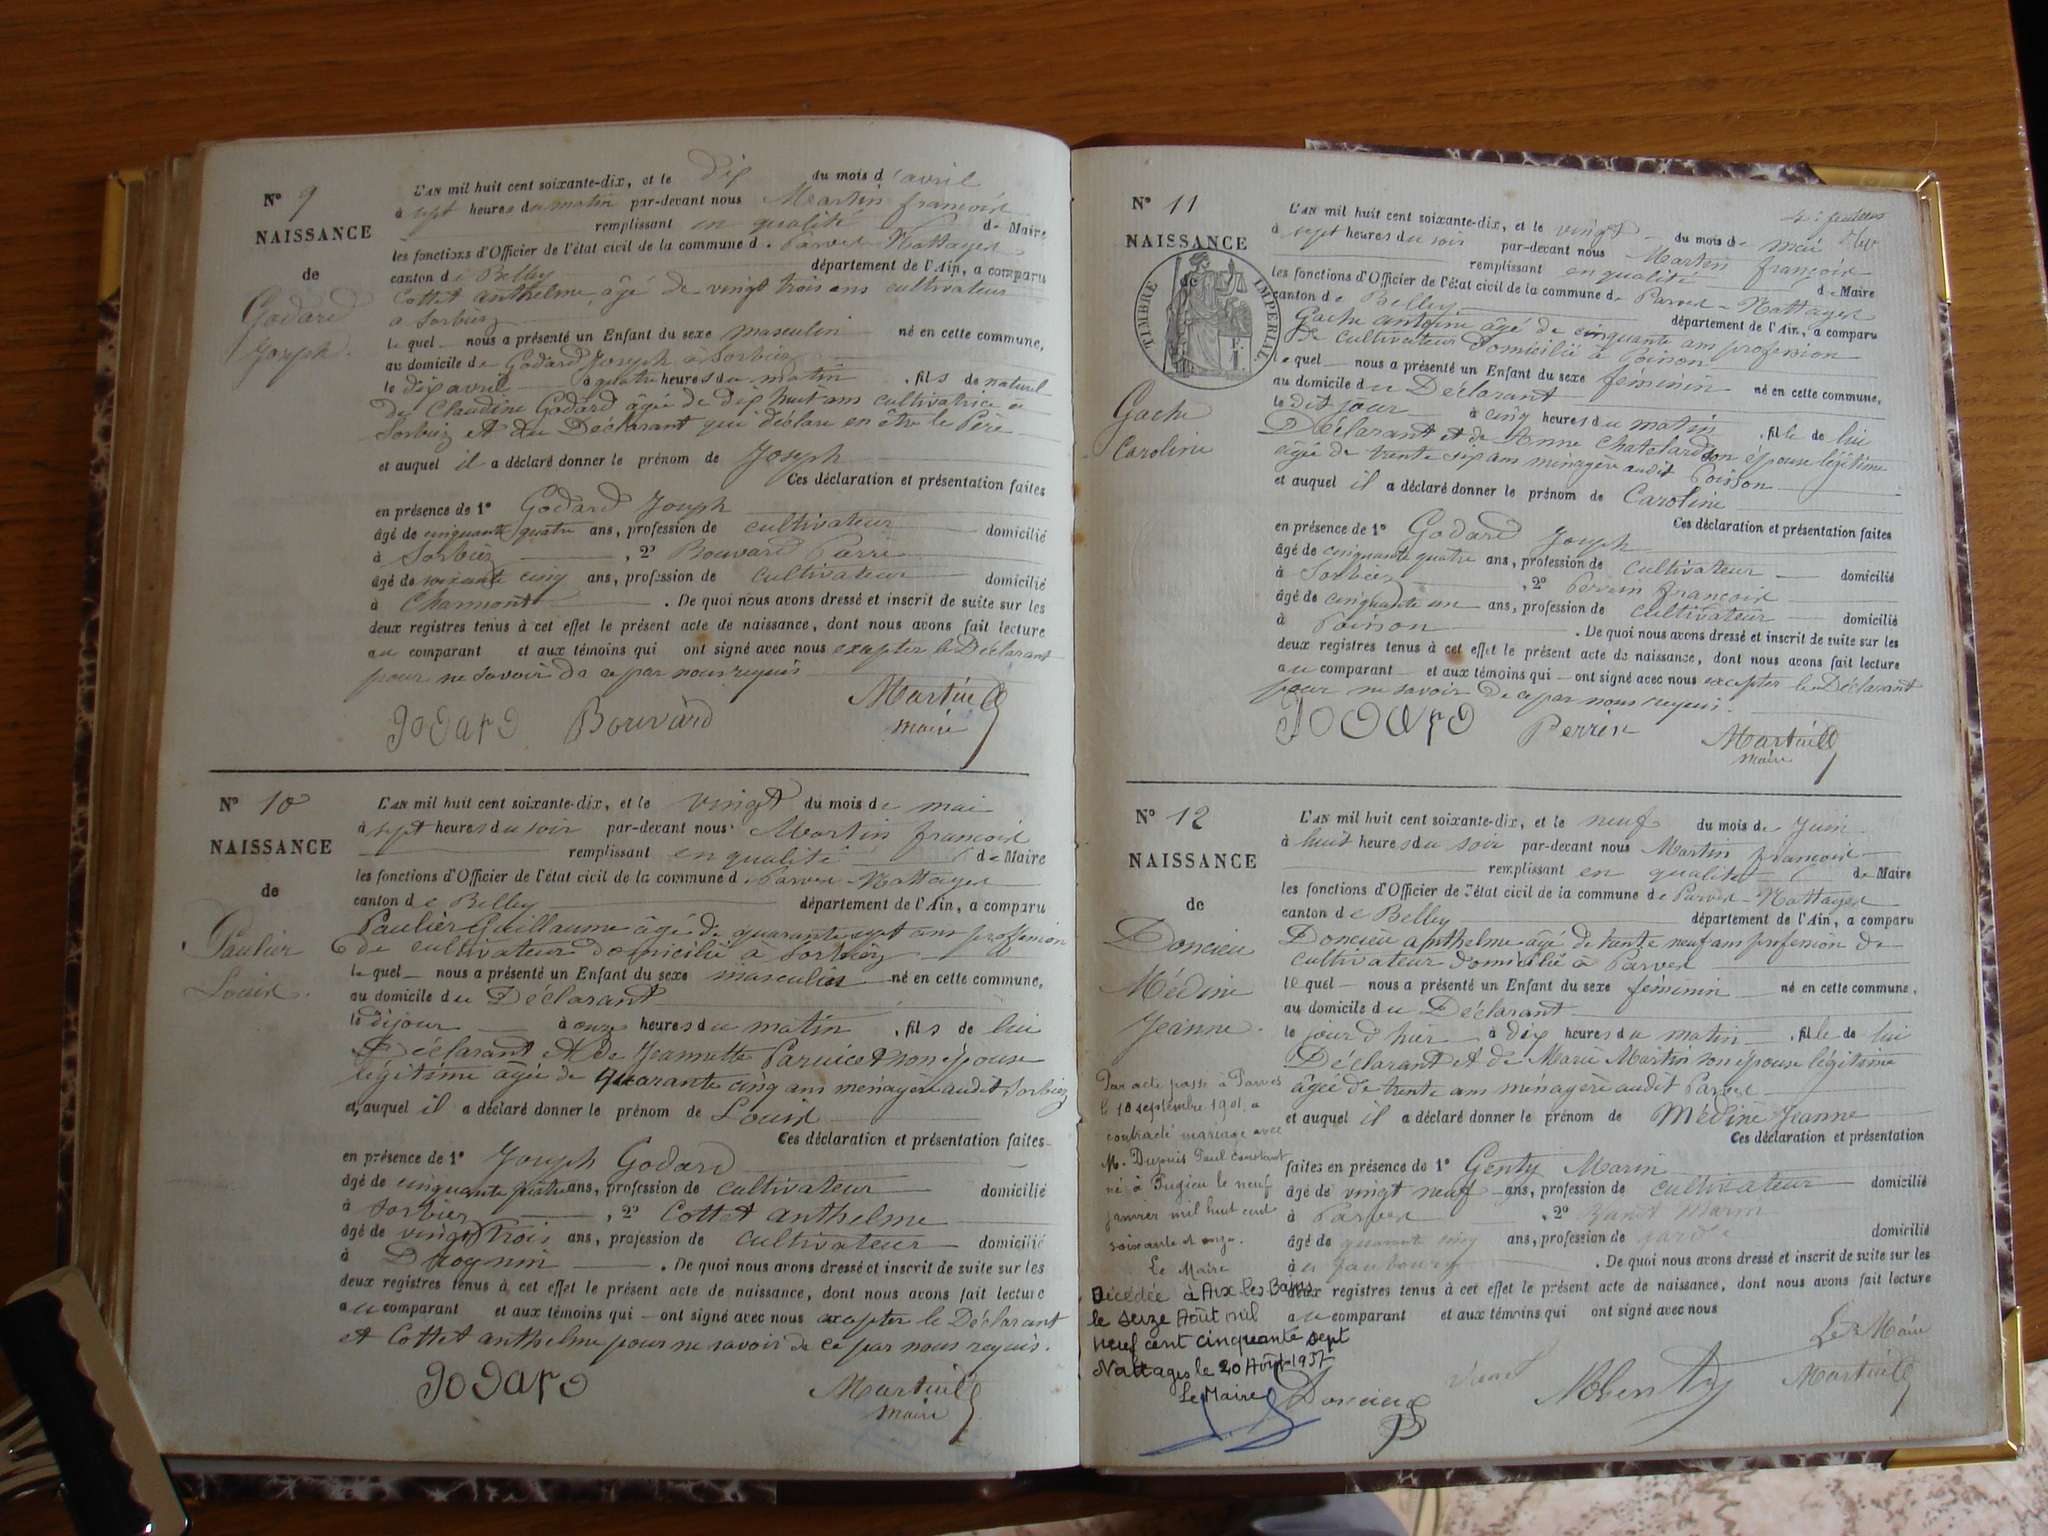 N° 9
NAISSANCE
de
Godard
Joseph.
L'AN mil huit cent soixante-dix, et le dix du mois d'avril
à sept heures du matin par-devant nous Martin françois
remplissant en qualité de Maire
les fonctions d'Officier de l'état civil de la commune d. Parves-Nattages
canton de Belley département de l'Ain, a comparu
Cottet anthelme âgé de vingt trois ans cultivateur
a Sorbiez
le quel nous a présenté un Enfant du sexe masculin né en cette commune,
au domicile de Godard Joseph a Sorbiez
le dix avril à quatre heures du matin, fils de naturel
de Claudine Godard âgée de dix huit ans cultivatrice a
Sorbiez et du Déclarant qui déclare en être le Père
et auquel il a déclaré donner le prénom de Joseph
Ces déclaration et présentation faites
en présence de 1° Godard Joseph
âgé de cinquante quatre ans, profession de cultivateur domicilié
à Sorbiez, 2° Bouvard Parri
âgé de soixante cinq ans, profession de cultivateur domicilié
à Charmont. De quoi nous avons dressé et inscrit de suite sur les
deux registres tenus à cet effet le présent acte de naissance, dont nous avons fait lecture
au comparant et aux témoins qui ont signé avec nous excepter le Déclarant
pour ne savoir de ce par nous requis
godard Bouvard Martin
maire
N° 10
NAISSANCE
de
Paulier
Louis.
L'AN mil huit cent soixante-dix, et le vingt du mois de mai
à sept heures du soir par-devant nous Martin françois
remplissant en qualité de Maire
les fonctions d'Officier de l'état civil de la commune d. Parves-Nattages
canton de Belley département de l'Ain, a comparu
Paulier Guillaume âgé de quarante sept ans profession
de cultivateur domicilié à Sorbiez
le quel nous a présenté un Enfant du sexe masculin né en cette commune,
au domicile du Déclarant
le dijour à onze heures du matin, fils de lui
Déclarant et de Jeannette son épouse
légitime âgée de quarante cinq ans ménagère audit Sorbiez
et auquel il a déclaré donner le prénom de Louis
Ces déclaration et présentation faites
en présence de 1° Joseph Godard
âgé de cinquante quatre ans, profession de cultivateur domicilié
à Sorbiez, 2° Cottet anthelme
âgé de vingt trois ans, profession de cultivateur domicilié
à. De quoi nous avons dressé et inscrit de suite sur les
deux registres tenus à cet effet le présent acte de naissance, dont nous avons fait lecture
au comparant et aux témoins qui ont signé avec nous excepter le Déclarant
et Cottet anthelme pour ne savoir de ce par nous requis.
godard Martin
maire
N° 11
NAISSANCE
de
TIMBRE IMPÉRIAL
Gache
Caroline
L'AN mil huit cent soixante-dix, et le vingt du mois de mai
à sept heures du soir par-devant nous Martin françois
remplissant en qualité de Maire
les fonctions d'Officier de l'état civil de la commune de Parves-Nattages
canton de Belley département de l'Ain, a comparu
Gache antoine âgé de cinquante ans profession
de cultivateur domicilié à Poisson
le quel nous a présenté un Enfant du sexe féminin né en cette commune,
au domicile du Déclarant
le dit jour à cinq heures du matin, fille de lui
Déclarant et de Anne Chatelard son épouse légitime
âgée de trente six ans ménagère audit Poisson
et auquel il a déclaré donner le prénom de Caroline
Ces déclaration et présentation faites
en présence de 1° Godard Joseph
âgé de cinquante quatre ans, profession de cultivateur domicilié
à Sorbiez, 2° Perrin françois
âgé de cinquante un ans, profession de cultivateur domicilié
à Poisson. De quoi nous avons dressé et inscrit de suite sur les
deux registres tenus à cet effet le présent acte de naissance, dont nous avons fait lecture
au comparant et aux témoins qui ont signé avec nous excepter le Déclarant
pour ne savoir de ce par nous requis.
godard Perrin Martin
maire
N° 12
NAISSANCE
de
Doncieu
Médine
Jeanne.
Par acte passé à Parves
le 10 septembre 1901 a
contracté mariage avec
M. Dupuis Paul Constant
né à Pugieu le neuf
janvier mil huit cent
soixante et onze.
Le Maire
Décédée à Aix les Bains
le seize Août mil
neuf cent cinquante sept
Nattages le 20 Août 1957
Le Maire
L'AN mil huit cent soixante-dix, et le neuf du mois de Juin
à huit heures du soir par-devant nous Martin françois
remplissant en qualité de Maire
les fonctions d'Officier de l'état civil de la commune de Parves-Nattages
canton de Belley département de l'Ain, a comparu
Doncieu anthelme âgé de trente neuf ans profession de
cultivateur domicilié à Parves
le quel nous a présenté un Enfant du sexe féminin né en cette commune,
au domicile du Déclarant
le jour d'hier à dix heures du matin, fille de lui
Déclarant et de Marie Martin son épouse légitime
âgée de trente ans ménagère audit Parves
et auquel il a déclaré donner le prénom de Médine Jeanne
Ces déclaration et présentation
faites en présence de 1° Genty Marin
âgé de vingt neuf ans, profession de cultivateur domicilié
à Parves, 2° Marin
âgé de quarante cinq ans, profession de garde domicilié
à faubourg. De quoi nous avons dressé et inscrit de suite sur les
deux registres tenus à cet effet le présent acte de naissance, dont nous avons fait lecture
au comparant et aux témoins qui ont signé avec nous
Le Maire
Doncieu Martin